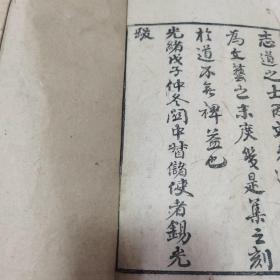 志道之士
為文藝之末庶幾是集之刻
於道不無裨益也
光緒戊子仲冬關中督儲使者錫光
跋